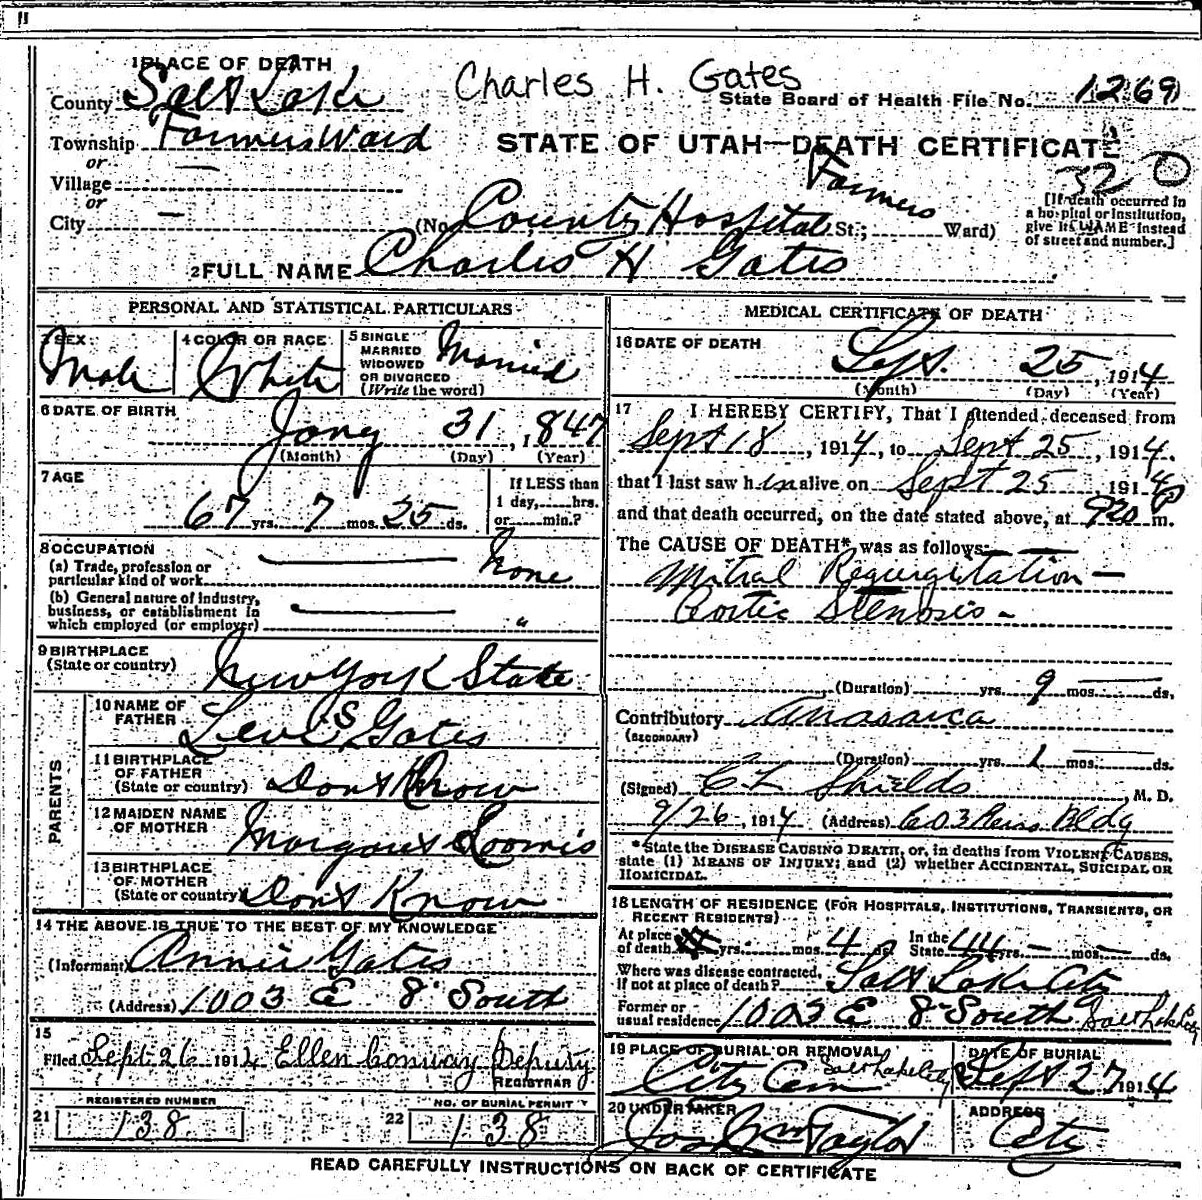 Charles H. Gates
1 PLACE OF DEATH
County Salt Lake
State Board of Health File No. 1269
Township Farmers Ward
STATE OF UTAH—DEATH CERTIFICATE
or
Village
320
or
City —
(No. County Hospital St.; Farmers Ward)
[If death occurred in a hospital or institution, give its NAME instead of street and number.]
2 FULL NAME Charles H Gates
PERSONAL AND STATISTICAL PARTICULARS
3 SEX Male
4 COLOR OR RACE White
5 SINGLE MARRIED WIDOWED OR DIVORCED (Write the word) Married
6 DATE OF BIRTH Jany 31, 1847
(Month) (Day) (Year)
7 AGE
67 yrs. 7 mos. 25 ds.
If LESS than 1 day, hrs. or min.?
8 OCCUPATION
(a) Trade, profession or particular kind of work None
(b) General nature of industry, business, or establishment in which employed (or employer) "
9 BIRTHPLACE
(State or country) New York State
PARENTS
10 NAME OF FATHER Levi S Gates
11 BIRTHPLACE OF FATHER (State or country) Dont Know
12 MAIDEN NAME OF MOTHER Margaret Loomis
13 BIRTHPLACE OF MOTHER (State or country) Dont Know
14 THE ABOVE IS TRUE TO THE BEST OF MY KNOWLEDGE
(Informant) Annie Gates
(Address) 1003 E 8" South
15
Filed Sept 26 1914 Ellen Conway Deputy
REGISTRAR
21 REGISTERED NUMBER 138
22 NO. OF BURIAL PERMIT 138
MEDICAL CERTIFICATE OF DEATH
16 DATE OF DEATH
Sept. 25, 1914
(Month) (Day) (Year)
17 I HEREBY CERTIFY, That I attended deceased from
Sept 18, 1914, to Sept 25, 1914.
that I last saw him alive on Sept 25 1914
and that death occurred, on the date stated above, at 920 P m.
The CAUSE OF DEATH* was as follows:
Mitral Regurgitation —
Aortic Stenosis -
(Duration) yrs. 9 mos. ds.
Contributory Anasarca
(SECONDARY)
(Duration) yrs. 1 mos. ds.
(Signed) C L Shields, M. D.
9/26, 1914 (Address) 603 Bldg
*State the DISEASE CAUSING DEATH, or, in deaths from VIOLENT CAUSES,
state (1) MEANS OF INJURY; and (2) whether ACCIDENTAL, SUICIDAL OR
HOMICIDAL.
18 LENGTH OF RESIDENCE (FOR HOSPITALS, INSTITUTIONS, TRANSIENTS, OR
RECENT RESIDENTS)
At place of death yrs. mos. 4 ds. In the State 44 yrs. — mos. — ds.
Where was disease contracted, If not at place of death? Salt Lake City
Former or usual residence 1003 E 8" South Salt Lake City
19 PLACE OF BURIAL OR REMOVAL City Cem Salt Lake City
DATE OF BURIAL Sept 27 1914
20 UNDERTAKER Jos Wm Taylor
ADDRESS City
READ CAREFULLY INSTRUCTIONS ON BACK OF CERTIFICATE